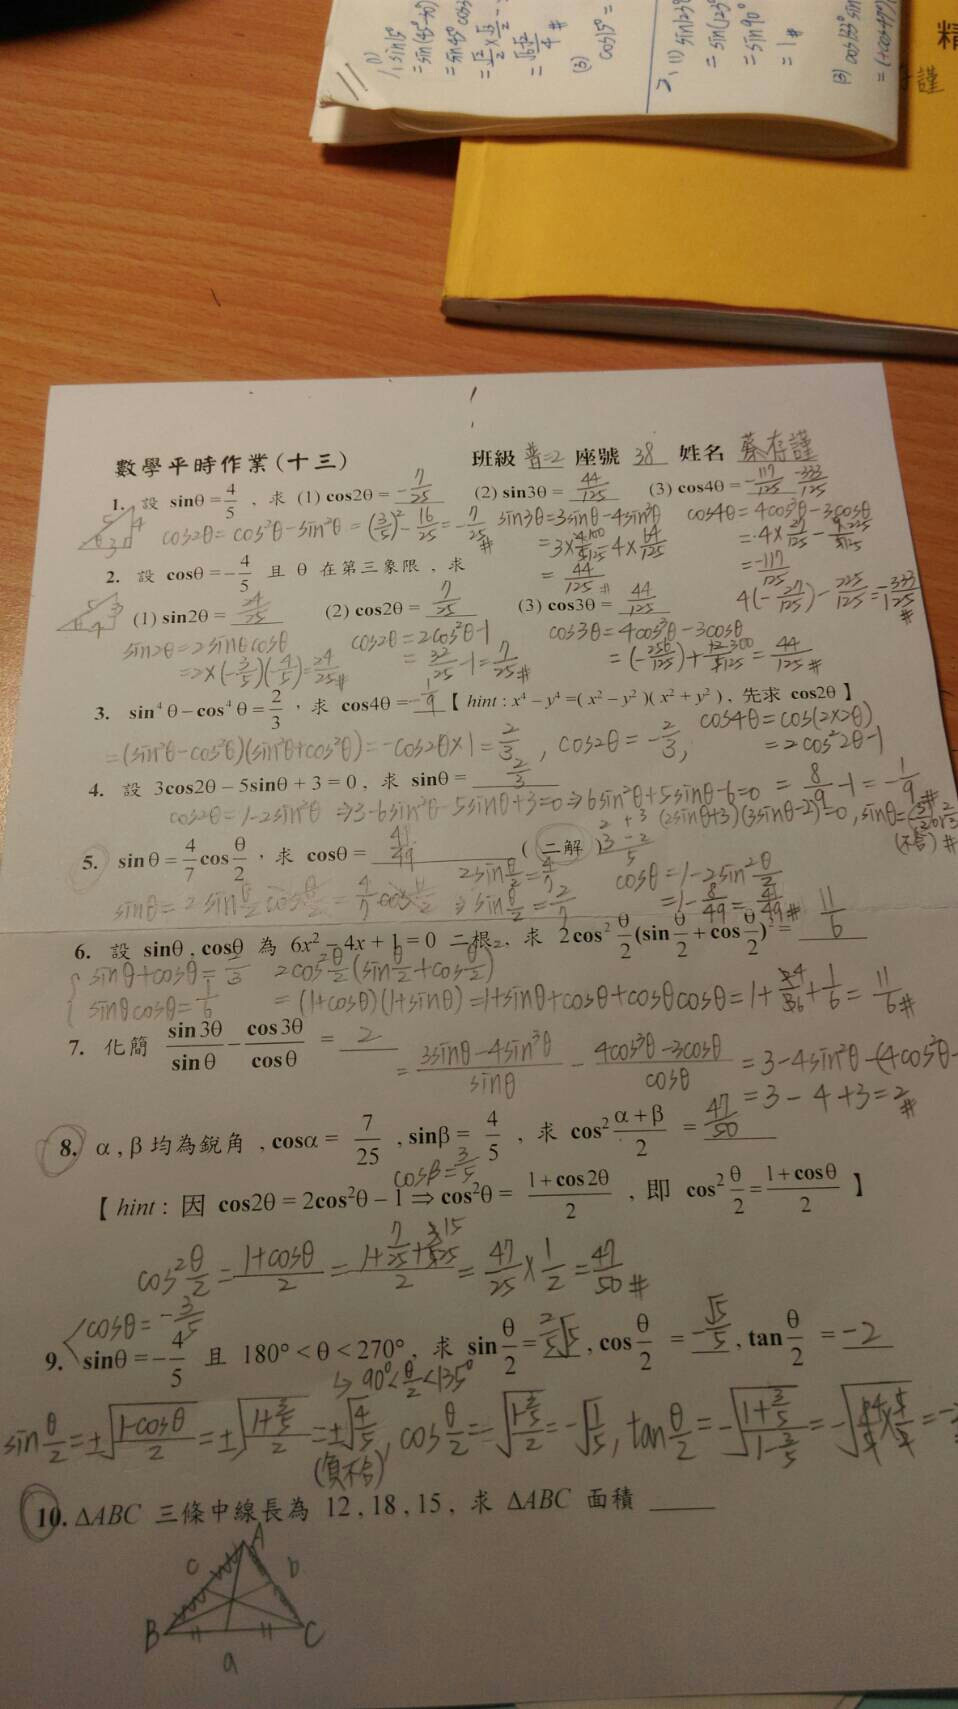 精
謹
數學平時作業(十三) 班級 普二 座號 38 姓名 蔡存謹
1. 設 sinθ = 4/5 , 求 (1) cos2θ = -7/25 (2) sin3θ = 44/125 (3) cos4θ =
cos2θ = cos²θ - sin²θ = (3/5)² - 16/25 = -7/25 #
sin3θ = 3sinθ - 4sin³θ
= 44/125 #
cos4θ = 4cos³θ - 3cosθ
= -117/125
4(-27/125) - 225/125 = 333/125 #
2. 設 cosθ = -4/5 且 θ 在第三象限 , 求
(1) sin2θ = 24/25 (2) cos2θ = 7/25 (3) cos3θ = 44/125
sin2θ = 2sinθcosθ
= 2×(-3/5)(-4/5) = 24/25 #
cos2θ = 2cos²θ - 1
= 32/25 - 1 = 7/25 #
cos3θ = 4cos³θ - 3cosθ
= (-256/125) + 300/125 = 44/125 #
3. sin⁴θ - cos⁴θ = 2/3 , 求 cos4θ = -1/9 【 hint : x⁴ - y⁴ = ( x² - y² )( x² + y² ) , 先求 cos2θ 】
= (sin²θ - cos²θ)(sin²θ + cos²θ) = -cos2θ × 1 = 2/3 , cos2θ = -2/3 ,
cos4θ = cos(2×2θ)
= 2cos²2θ - 1
= 8/9 - 1 = -1/9 #
4. 設 3cos2θ - 5sinθ + 3 = 0 , 求 sinθ = 2/3
cos2θ = 1 - 2sin²θ ⇒ 3 - 6sin²θ - 5sinθ + 3 = 0 ⇒ 6sin²θ + 5sinθ - 6 = 0
2 + 3
3 - 2
5
(2sinθ + 3)(3sinθ - 2) = 0 , sinθ =
(不合) #
5. sinθ = 4/7 cos θ/2 , 求 cosθ = 41/49 ( 二解 )
sinθ = 2 sin θ/2 cos θ/2 = 4/7 cos θ/2 ⇒ sin θ/2 = 2/7
2sin θ/2 = 4/7
cosθ = 1 - 2sin² θ/2
= 1 - 8/49 = 41/49 #
6. 設 sinθ , cosθ 為 6x² - 4x + 1 = 0 二根 , 求 2cos² θ/2 (sin θ/2 + cos θ/2)² = 11/6
sinθ + cosθ = 2/3
sinθcosθ = 1/6
2cos² θ/2 (sin θ/2 + cos θ/2)²
= (1 + cosθ)(1 + sinθ) = 1 + sinθ + cosθ + cosθcosθ = 1 + 4/6 + 1/6 = 11/6 #
7. 化簡 sin3θ/sinθ - cos3θ/cosθ = 2
= (3sinθ - 4sin³θ)/sinθ - (4cos³θ - 3cosθ)/cosθ = 3 - 4sin²θ - (4cos²θ -
= 3 - 4 + 3 = 2 #
8. α , β 均為銳角 , cosα = 7/25 , sinβ = 4/5 , 求 cos² (α + β)/2 = 47/50
cosβ = 3/5
【 hint : 因 cos2θ = 2cos²θ - 1 ⇒ cos²θ = (1 + cos2θ)/2 , 即 cos² θ/2 = (1 + cosθ)/2 】
cos² θ/2 = (1 + cosθ)/2 = = 47/25 × 1/2 = 47/50 #
cosθ = -3/5
9. sinθ = -4/5 且 180° < θ < 270° , 求 sin θ/2 = 2/5 √5 , cos θ/2 = -√5/5 , tan θ/2 = -2
↳ 90° < θ/2 < 135°
sin θ/2 = ±√((1 - cosθ)/2) = ±√((1 + 3/5)/2) = ±√(4/5) , cos θ/2 = -√((1 - 3/5)/2) = -√(1/5) , tan θ/2 = -√((1 + 3/5)/(1 - 3/5)) =
(負不合)
10. ΔABC 三條中線長為 12 , 18 , 15 , 求 ΔABC 面積
A
c b
B C
a